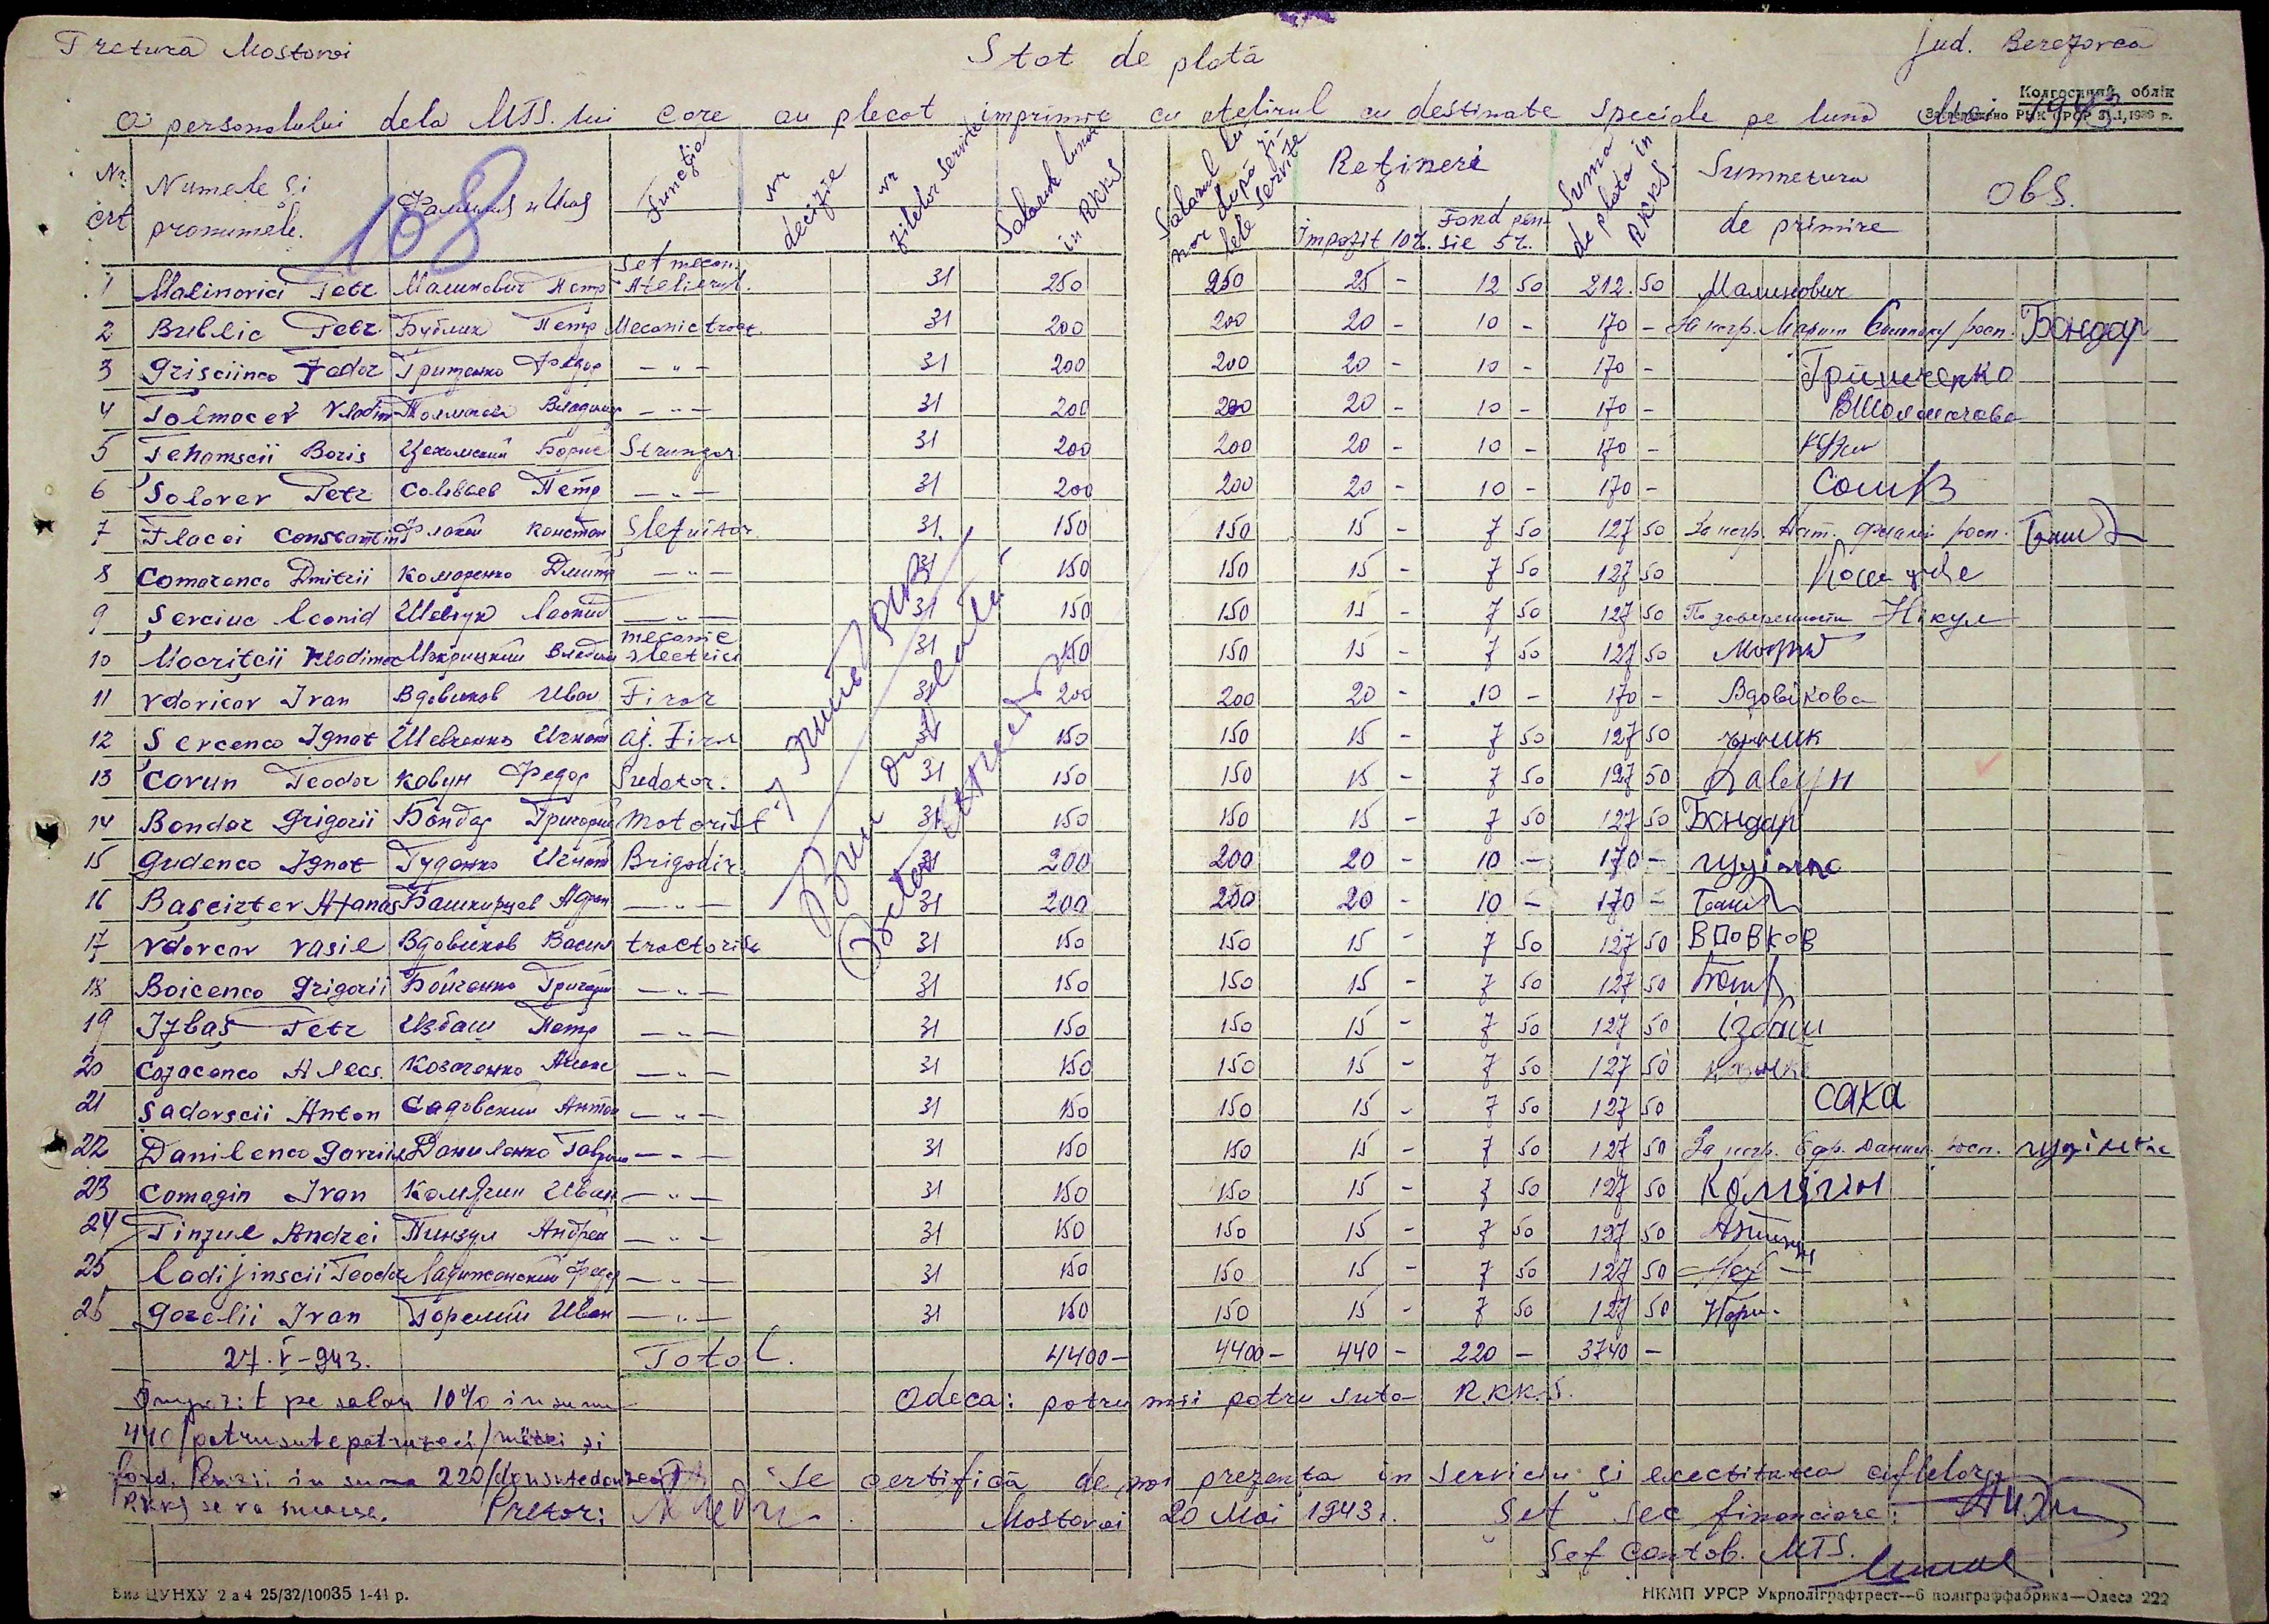 Pretura Mostovoi
Stat de plată
Jud. Berezovca
Колгоспний облік
a personalului dela MTS. lui care au plecat imprimire cu atelirul cu destinate speciale pe luna Mai 1943
Затверджено РНК УРСР 31.1,1939 р.
108
Nr. crt
Numele și pronumele.
Фамилия и Имя
Funcția
Nr decizie
Nr zilelor servite
Salarul lunar în RKKS
Salarul lunar după zilele servite
Rețineri
Impozit 10%.
Fond pensie 5%.
Suma de plata în RKKS.
Sumnetura de primire
Obs.
1 Malinovici Petr Малинович Петр Șef mecan. Atelierul. 31 250 250 25 - 12 50 212.50 Малинович
2 Bublic Petr Бублик Петр Mecanic tract. 31 200 200 20 - 10 - 170 - За негр. росп. Бондар
3 Grisciinco Fedor Грищенко Федор -"- 31 200 200 20 - 10 - 170 - Грищенко
4 Tolmacev Vladim Толмачев Владимир -"- 31 200 200 20 - 10 - 170 -
5 Tehomscii Boris Цехомский Борис Strungar 31 200 200 20 - 10 - 170 -
6 Solovev Petr Соловьев Петр -"- 31 200 200 20 - 10 - 170 -
7 Flacei Constantin Флакей Констан Șlefuitor 31 150 150 15 - 7 50 127 50 За негр. росп.
8 Comarenco Dmitrii Комаренко Дмитр -"- 31 150 150 15 - 7 50 127 50
9 Șevciuc Leonid Шевчук Леонид -"- 31 150 150 15 - 7 50 127 50 По доверенности Нікул
10 Mocritcii Vladimer Мокрицкий Владим mecanic electrici 31 150 150 15 - 7 50 127 50
11 Vdovicov Ivan Вдовиков Иван Firar 31 200 200 20 - 10 - 170 - Вдовікова
12 Sevcenco Ignat Шевченко Игнат aj. Firar 31 150 150 15 - 7 50 127 50
13 Covun Teodor Ковун Федор Sudator. 31 150 150 15 - 7 50 127 50 Кавун
14 Bondar Grigorii Бондар Григорий Motorist 31 150 150 15 - 7 50 127 50 Бондар
15 Gudenco Ignat Гуденко Игнат Brigadir 31 200 200 20 - 10 - 170 -
16 Bașcirțev Afanas Башкирцев Афан -"- 31 200 200 20 - 10 - 170 -
17 Vdovcov Vasil Вдовиков Васил tractorist 31 150 150 15 - 7 50 127 50 Вдовков
18 Boicenco Grigorii Бойченко Григорий -"- 31 150 150 15 - 7 50 127 50
19 Izbaș Petr Избаш Петр -"- 31 150 150 15 - 7 50 127 50 Ізбаш
20 Cozacenco Alecs. Козаченко Алекс -"- 31 150 150 15 - 7 50 127 50
21 Sadovscii Anton Садовский Антон -"- 31 150 150 15 - 7 50 127 50 сака
22 Danilenco Gavriil Даниленко Гаврил -"- 31 150 150 15 - 7 50 127 50 За негр. росп.
23 Comagin Ivan Комягин Иван -"- 31 150 150 15 - 7 50 127 50 Комягин
24 Pinzul Andrei Пинзул Андрей -"- 31 150 150 15 - 7 50 127 50
25 Ladijinscii Teodor Ладиженский Федор -"- 31 150 150 15 - 7 50 127 50
26 Gorelii Ivan Горелий Иван -"- 31 150 150 15 - 7 50 127 50
27.V-943. Total. 4400 - 4400 - 440 - 220 - 3740 -
Impozit pe salar 10% in suma
Odeca: patru mii patru suta R.KK.S.
440/patrusutepatruzeci/mărci și
fond. Pensii in suma 220/douasutedouazeci
Se certifică de noi prezența in serviciu și exectitatea cifrelor
RKKS se va incasa. Pretor:
Mostovoi 20 Mai 1943.
Șef sec financiare:
Șef Contab. MTS.
Вид ЦУНХУ 2 а 4 25/32/10035 1-41 р.
НКМП УРСР Укрполіграфтрест—6 поліграффабрика—Одеса 222